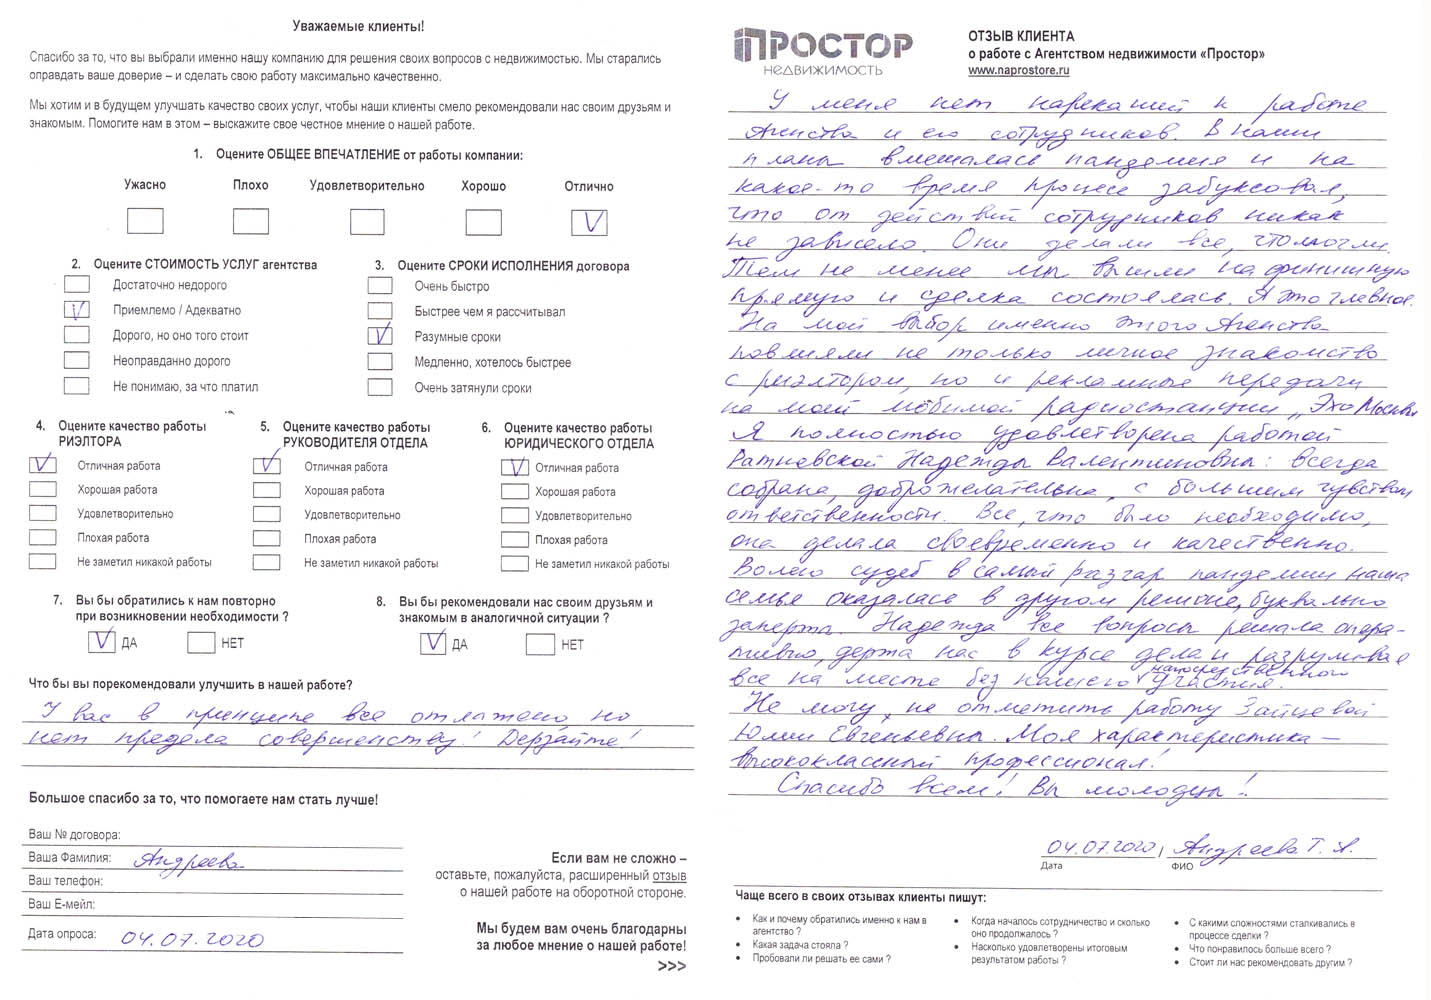 Уважаемые клиенты!
Спасибо за то, что вы выбрали именно нашу компанию для решения своих вопросов с недвижимостью. Мы старались
оправдать ваше доверие – и сделать свою работу максимально качественно.
Мы хотим и в будущем улучшать качество своих услуг, чтобы наши клиенты смело рекомендовали нас своим друзьям и
знакомым. Помогите нам в этом – выскажите свое честное мнение о нашей работе.
1. Оцените ОБЩЕЕ ВПЕЧАТЛЕНИЕ от работы компании:
Ужасно Плохо Удовлетворительно Хорошо Отлично
V
2. Оцените СТОИМОСТЬ УСЛУГ агентства
Достаточно недорого
V Приемлемо / Адекватно
Дорого, но оно того стоит
Неоправданно дорого
Не понимаю, за что платил
3. Оцените СРОКИ ИСПОЛНЕНИЯ договора
Очень быстро
Быстрее чем я рассчитывал
V Разумные сроки
Медленно, хотелось быстрее
Очень затянули сроки
4. Оцените качество работы
РИЭЛТОРА
V Отличная работа
Хорошая работа
Удовлетворительно
Плохая работа
Не заметил никакой работы
5. Оцените качество работы
РУКОВОДИТЕЛЯ ОТДЕЛА
V Отличная работа
Хорошая работа
Удовлетворительно
Плохая работа
Не заметил никакой работы
6. Оцените качество работы
ЮРИДИЧЕСКОГО ОТДЕЛА
V Отличная работа
Хорошая работа
Удовлетворительно
Плохая работа
Не заметил никакой работы
7. Вы бы обратились к нам повторно
при возникновении необходимости ?
V ДА НЕТ
8. Вы бы рекомендовали нас своим друзьям и
знакомым в аналогичной ситуации ?
V ДА НЕТ
Что бы вы порекомендовали улучшить в нашей работе?
У вас в принципе все отлажено, но
нет предела совершенству! Дерзайте!
Большое спасибо за то, что помогаете нам стать лучше!
Ваш № договора:
Ваша Фамилия: Андреева
Ваш телефон:
Ваш Е-мейл:
Дата опроса: 04.07.2020
Если вам не сложно –
оставьте, пожалуйста, расширенный отзыв
о нашей работе на оборотной стороне.
Мы будем вам очень благодарны
за любое мнение о нашей работе!
>>>
ПРОСТОР
НЕДВИЖИМОСТЬ
ОТЗЫВ КЛИЕНТА
о работе с Агентством недвижимости «Простор»
www.naprostore.ru
У меня нет нареканий к работе
Агенства и его сотрудников. В наши
планы вмешалась пандемия и на
какое-то время процесс забуксовал,
что от действий сотрудников никак
не зависело. Они делали все, что могли.
Тем не менее мы вышли на финишную
прямую и сделка состоялась. А это главное.
На мой выбор именно этого Агенства
повлияли не только личное знакомство
с риэлтором, но и рекламные передачи
на моей любимой радиостанции „Эхо Москвы
Я полностью удовлетворена работой
Ратновской Надежды Валентиновны: всегда
собрана, доброжелательна, с большим чувством
ответственности. Все, что было необходимо,
она делала своевременно и качественно.
Волею судеб в самый разгар пандемии наша
семья оказалась в другом регионе, буквально
заперта. Надежда все вопросы решала опера-
тивно, держа нас в курсе дела и разруливая
все на месте без нашего непосредственного участия.
Не могу не отметить работу Зайцевой
Юлии Евгеньевны. Моя характеристика –
высококлассный профессионал!
Спасибо всем! Вы молодцы!
04.07.2020 / Андреева Т. А.
Дата ФИО
Чаще всего в своих отзывах клиенты пишут:
• Как и почему обратились именно к нам в
агентство ?
• Какая задача стояла ?
• Пробовали ли решать ее сами ?
• Когда началось сотрудничество и сколько
оно продолжалось ?
• Насколько удовлетворены итоговым
результатом работы ?
• С какими сложностями сталкивались в
процессе сделки ?
• Что понравилось больше всего ?
• Стоит ли нас рекомендовать другим ?